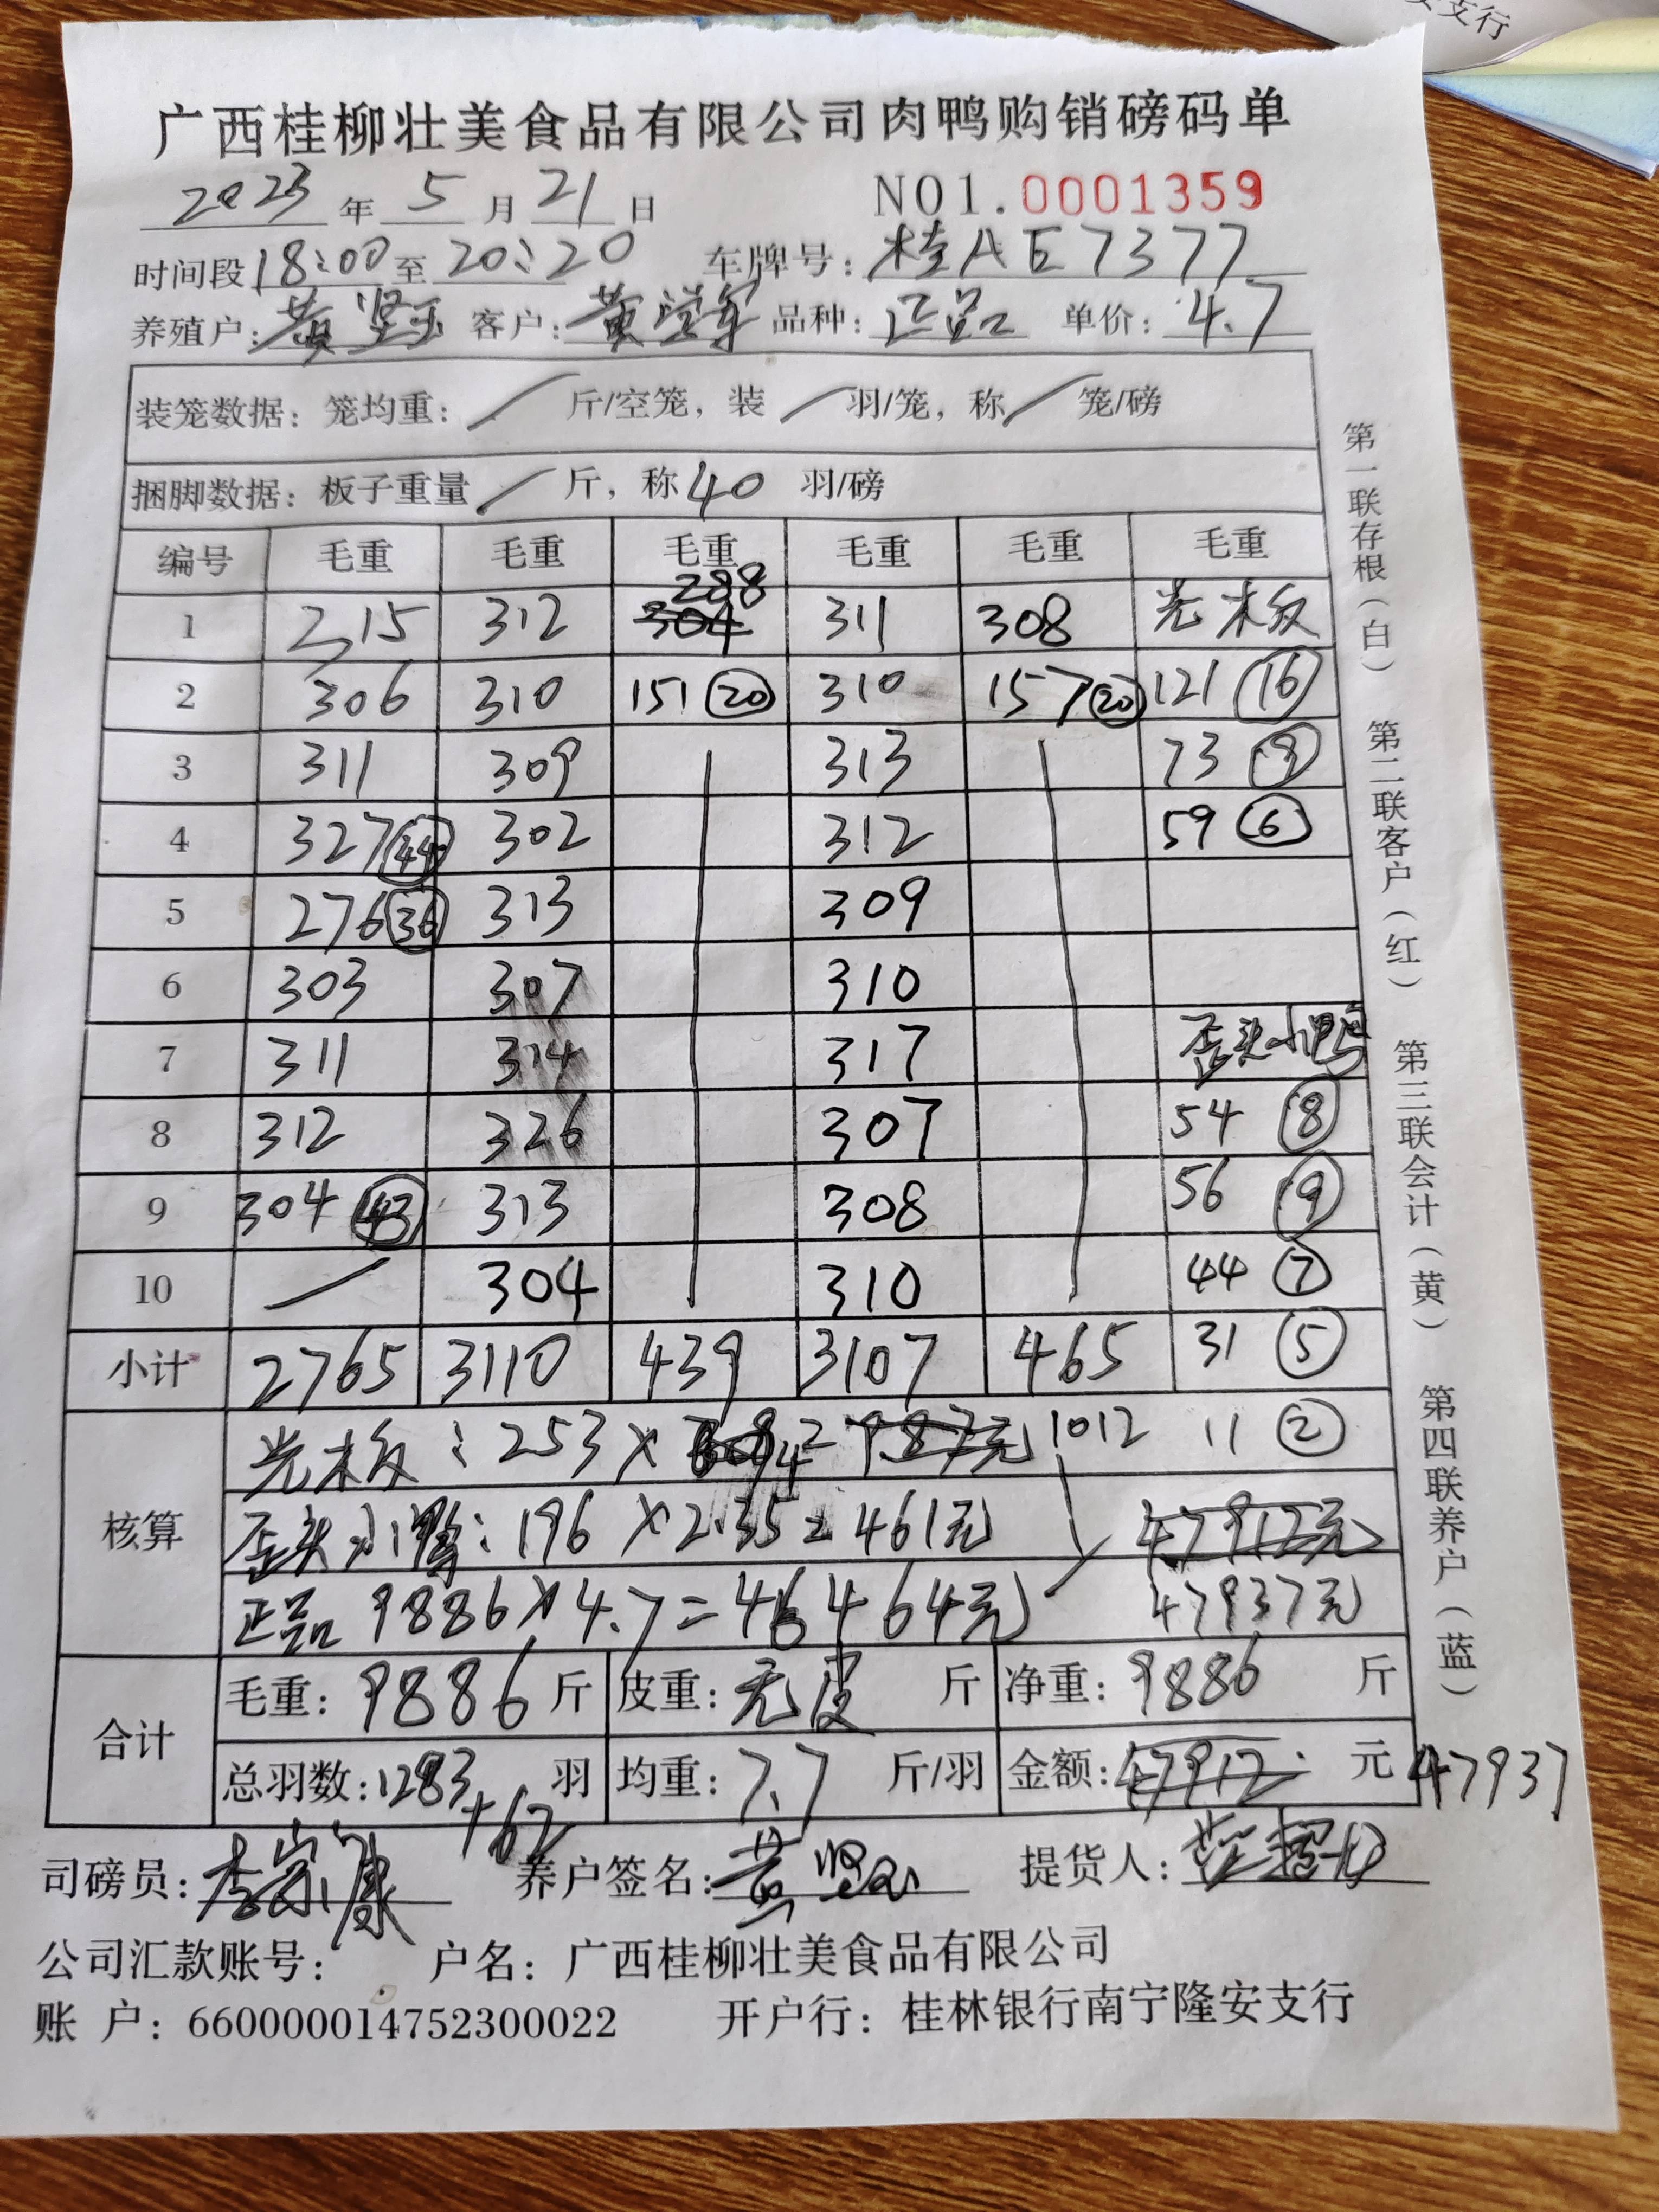 安支行
广西桂柳壮美食品有限公司肉鸭购销磅码单
2023 年 5 月 21 日 NO1.0001359
时间段 18:00 至 20:20 车牌号: 桂AE7377
养殖户: 黄坚玉 客户: 黄 军 品种: 正品 单价: 4.7
装笼数据: 笼均重: / 斤/空笼, 装 / 羽/笼, 称 / 笼/磅
捆脚数据: 板子重量 / 斤, 称 40 羽/磅
编号 毛重 毛重 毛重 毛重 毛重 毛重
288
1 215 312 304 311 308 光木板
2 306 310 151 20 310 157 20 121 16
3 311 309 313 73 9
4 327 44 302 312 59 6
5 276 36 313 309
6 303 307 310
7 311 314 317 歪头小鸭
8 312 326 307 54 8
9 304 43 313 308 56 9
10 / 304 310 44 7
小计 2765 3110 439 3107 465 31 5
核算
光木板: 253 × 4 = 987元 1012 11 2
歪头小鸭: 196 × 2.35 = 461元 47912元
正品 9886 × 4.7 = 46464元 47937元
合计
毛重: 9886 斤 皮重: 无皮 斤 净重: 9886 斤
总羽数: 1283 +62 羽 均重: 7.7 斤/羽 金额: 47912. 元 47937
司磅员: 李宗康 养户签名: 黄坚玉 提货人:
公司汇款账号: 户名: 广西桂柳壮美食品有限公司
账 户: 660000014752300022 开户行: 桂林银行南宁隆安支行
第一联存根(白) 第二联客户(红) 第三联会计(黄) 第四联养户(蓝)